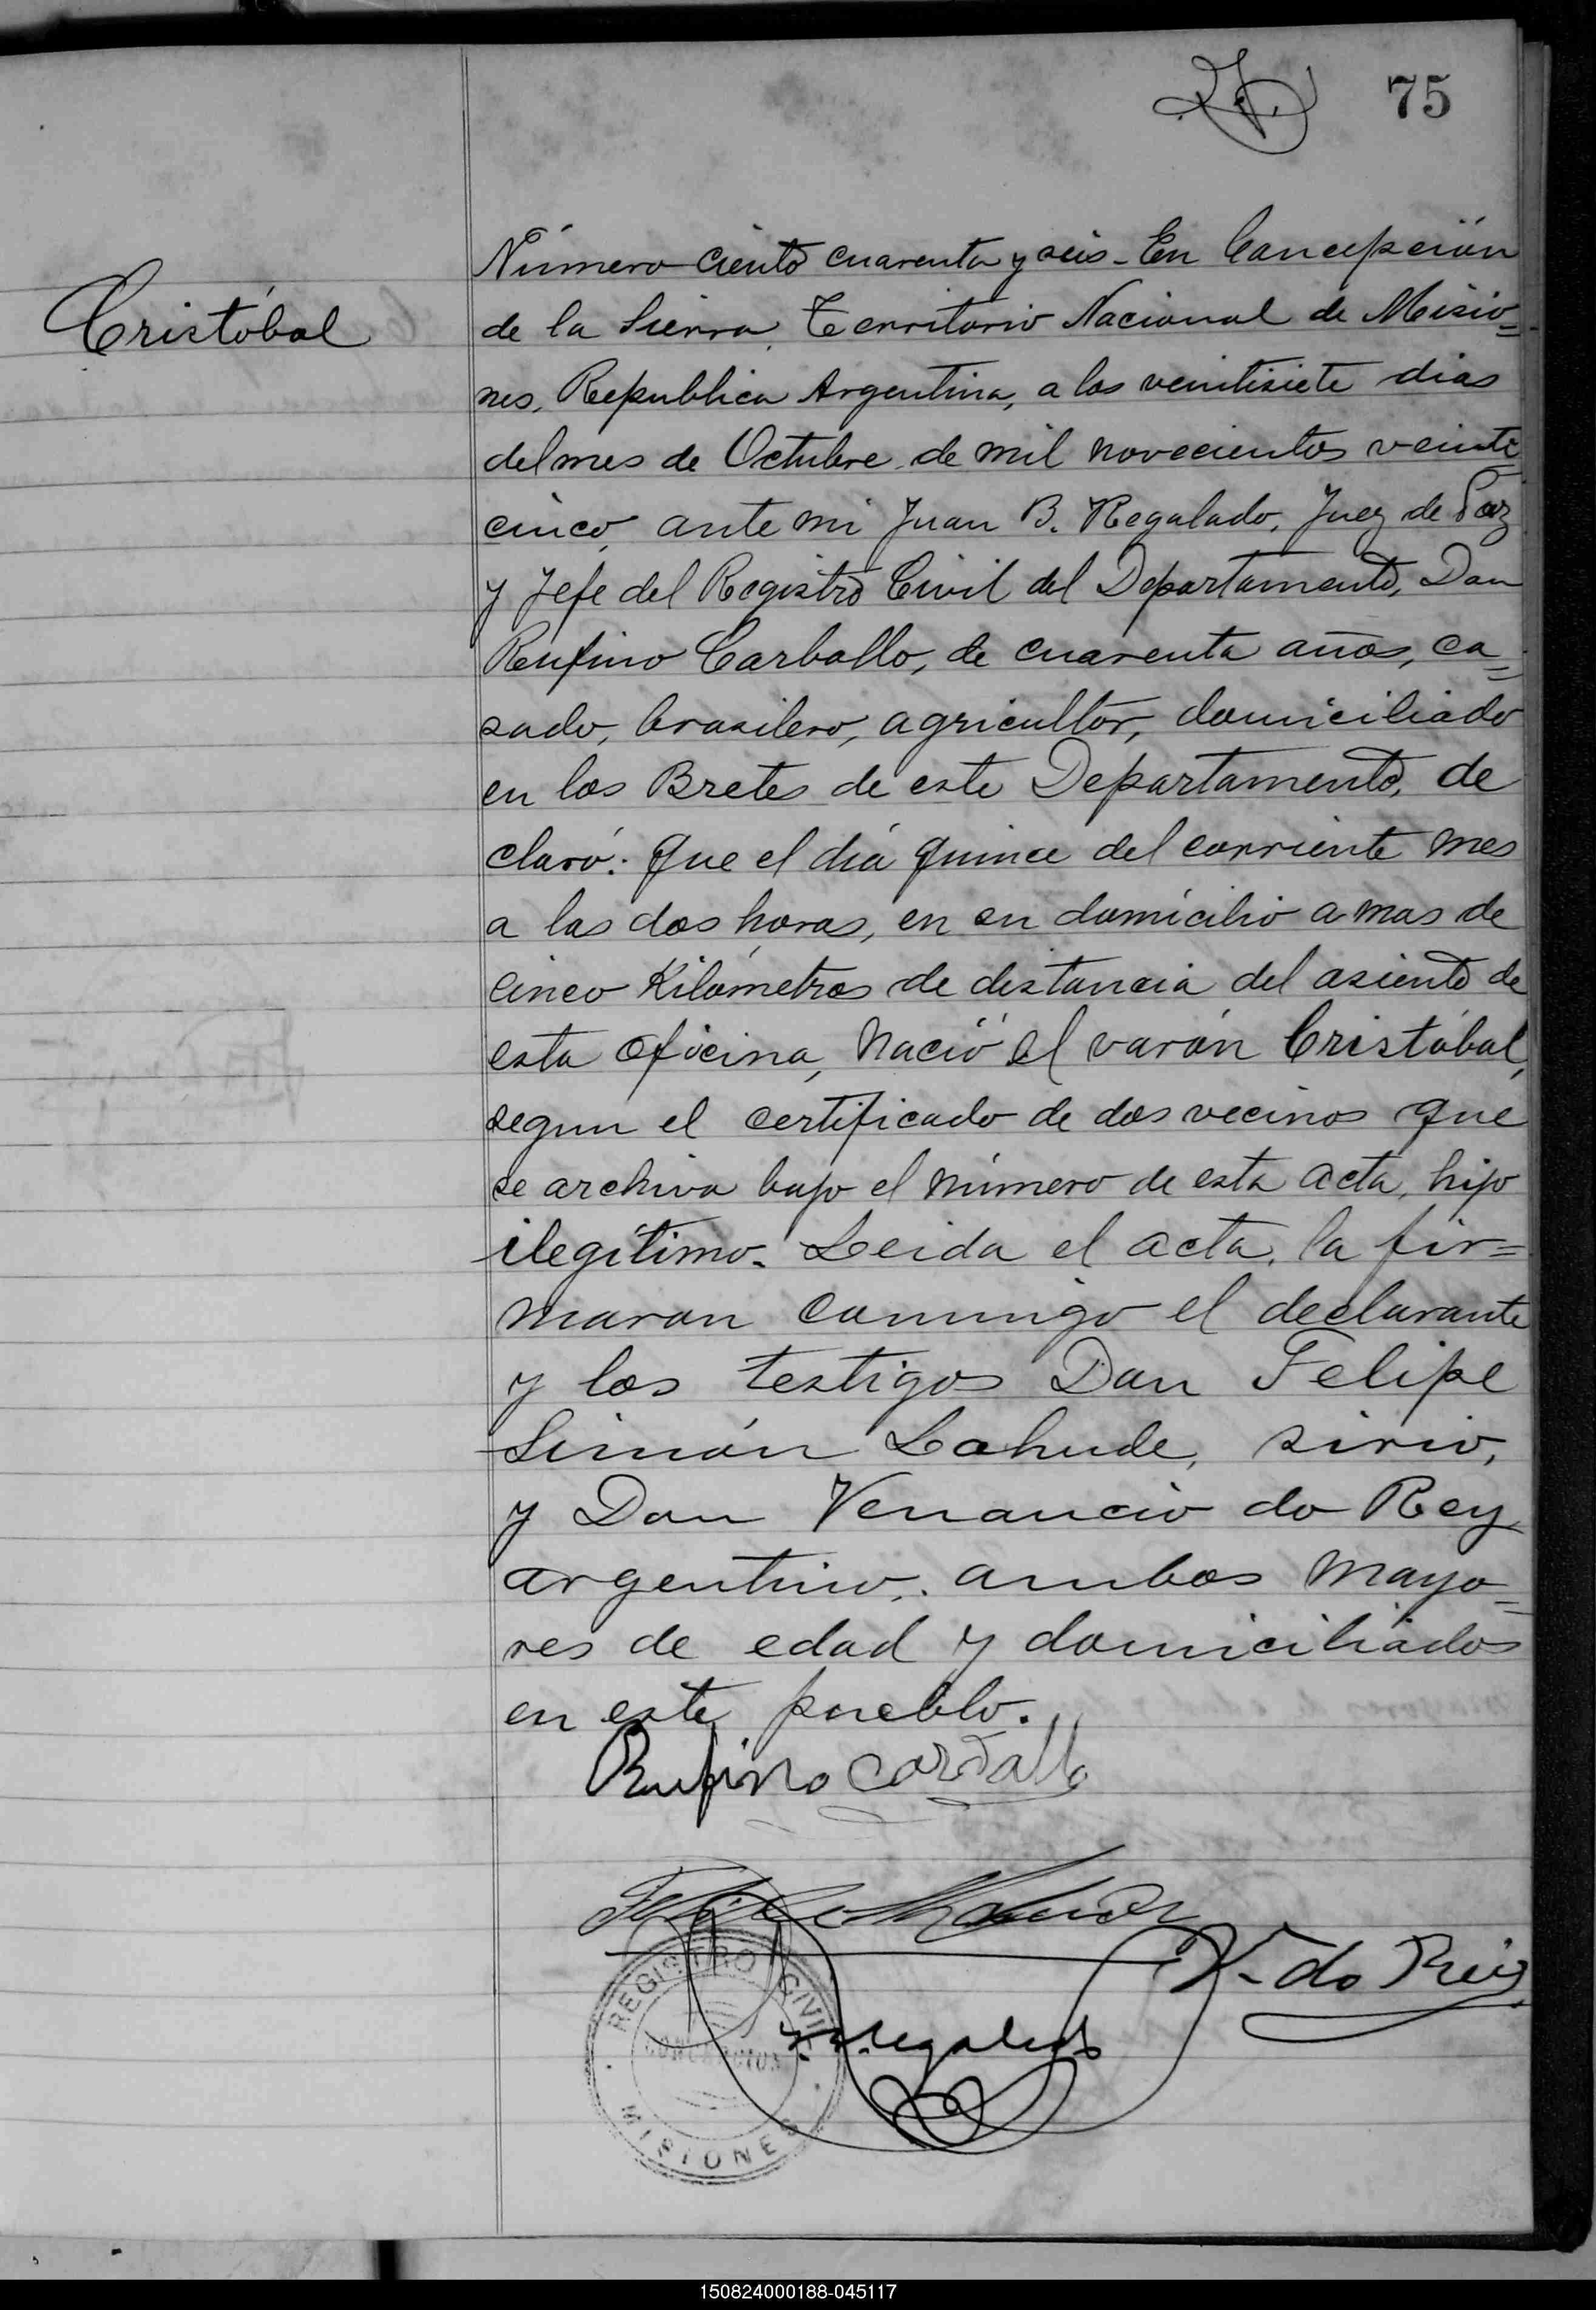 75
Cristóbal
Número ciento cuarenta y seis - En Concepción
de la Sierra, Territorio Nacional de Misio=
nes, Republica Argentina, a los veintisiete dias
del mes de Octubre de mil novecientos veinte
cinco, ante mi Juan B. Regalado, Juez de Paz
y Jefe del Registro Civil del Departamento, Don
Rufino Carballo, de cuarenta años, ca=
sado, brasilero, agricultor, domiciliado
en los Bretes de este Departamento, de
claró: Que el día quince del corriente mes
a las dos horas, en su domicilio a mas de
cinco Kilómetros de distancia del asiento de
esta oficina, nació el varón Cristóbal,
segun el certificado de dos vecinos que
se archiva bajo el número de esta acta, hijo
ilegítimo. Leida el acta, la fir=
maron conmigo el declarante
y los testigos Don Felipe
Simón Lahude, sirio,
y Don Venancio do Rey
argentino, ambos mayo=
res de edad y domiciliados
en este pueblo.
Rufino Carballo
V. do Rey
REGISTRO CIVIL
CONCEPCION
MISIONES
150824000188-045117